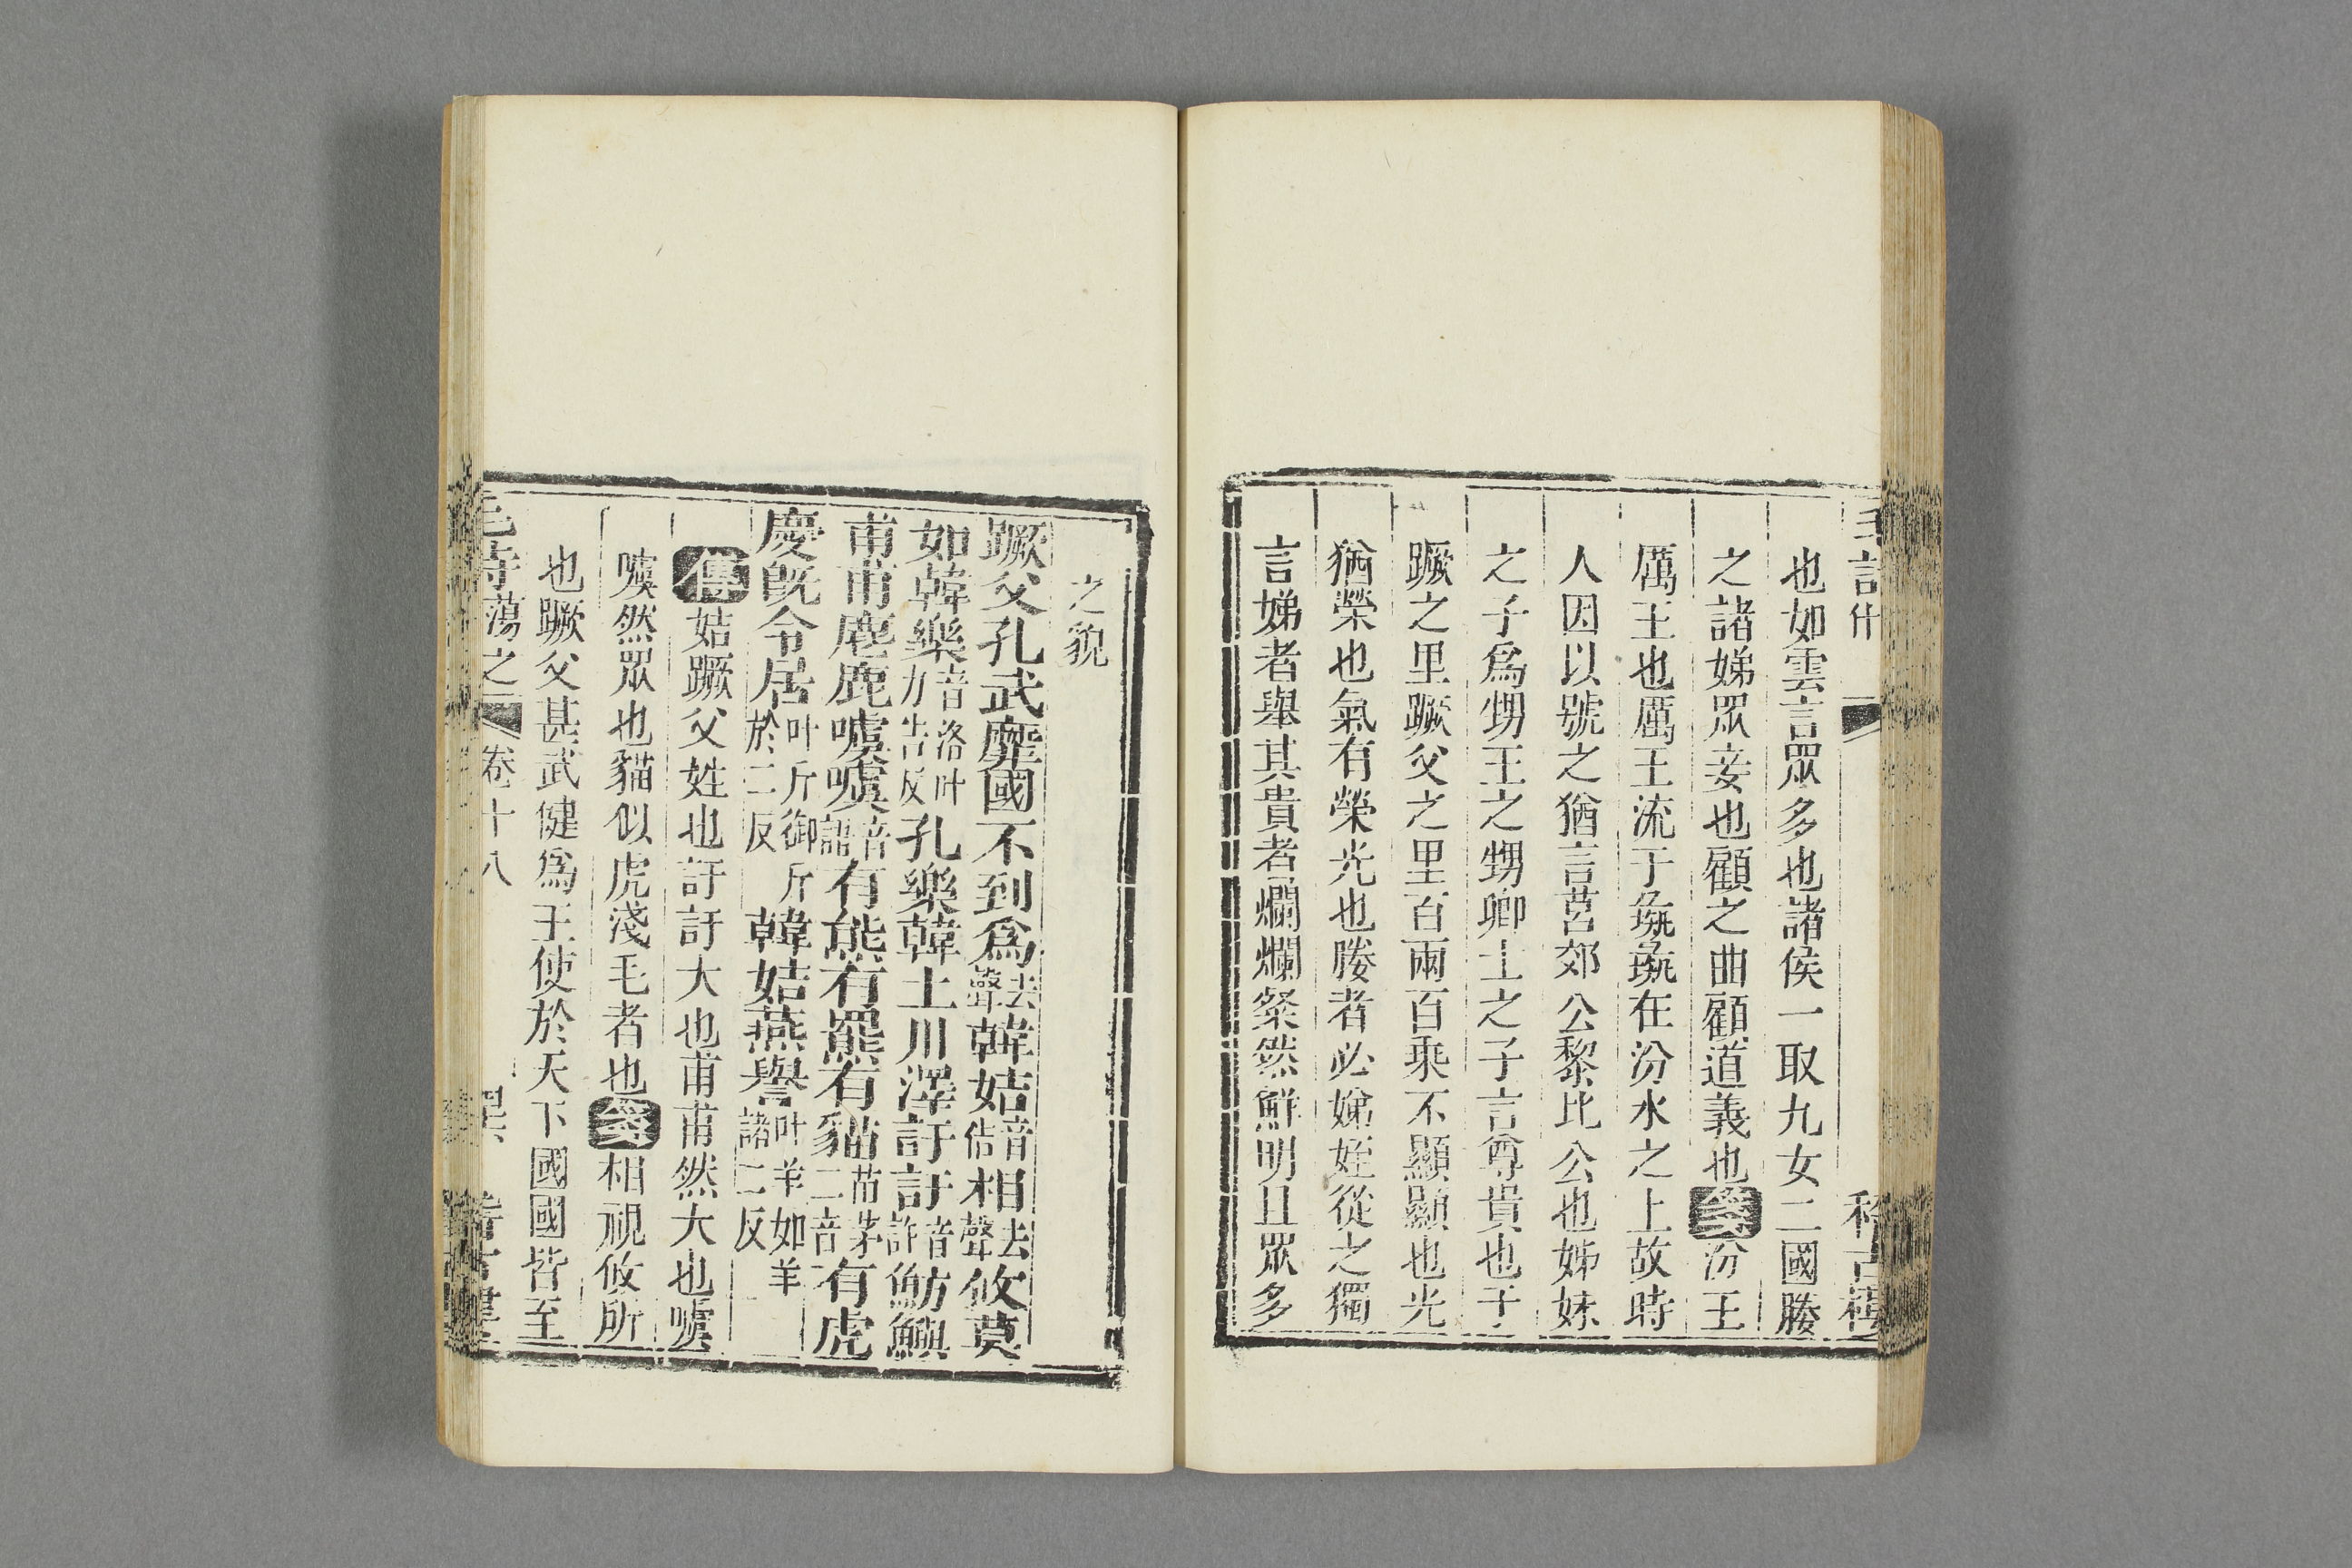 也如雲言眾多也諸侯一取九女二國媵
之諸娣眾妾也顧之曲顧道義也箋汾王
厲王也厲王流于彘彘在汾水之上故時
人因以號之猶言莒郊公黎比公也姊妹
之子為甥王之甥卿士之子言尊貴也于
蹶之里蹶父之里百兩百乘不顯顯也光
猶榮也氣有榮光也媵者必娣姪從之獨
言娣者舉其貴者爛爛粲然鮮明且眾多
之貌
蹶父孔武靡國不到為去聲韓姞音佶相去聲攸莫
如韓樂音洛叶力告反孔樂韓土川澤訏訏音許魴鱮
甫甫麀鹿噳噳音語有熊有羆有貓苗茅二音有虎
慶既令居叶斤御斤於二反韓姞燕譽叶羊如羊諸二反
傳姞蹶父姓也訏訏大也甫甫然大也噳
噳然眾也貓似虎淺毛者也箋相視攸所
也蹶父甚武健為王使於天下國國皆至
毛詩蕩之 卷十八